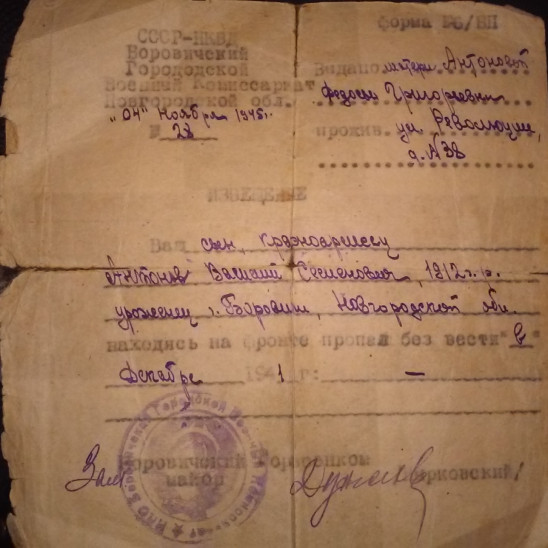 СССР-НКВД
Боровичский
Городской
Военный Комиссариат
Новгородской обл.
"04" Ноября 1945г.
№ 28
форма №6/БП
Видано матери Антоновой
Федосьи Григорьевны
прожив. ул Революции,
д.
ИЗВЕЩЕНИЕ
Ваш сын, красноармеец
Антонов Василий Семенович, 1912 г.р.
уроженец г. Боровичи, Новгородской обл.
находясь на фронте пропал без вести "в"
Декабре 1941 г: —
Боровичский Горвоенком
Зам майор